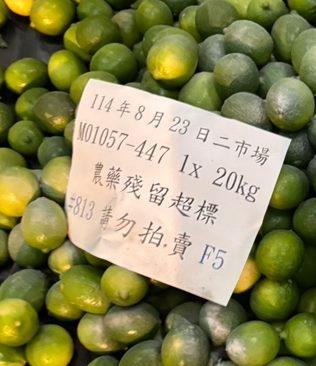 114年8月23日二市場
M01057-447 1x 20kg
農藥殘留超標
#813 請勿拍.賣 F5